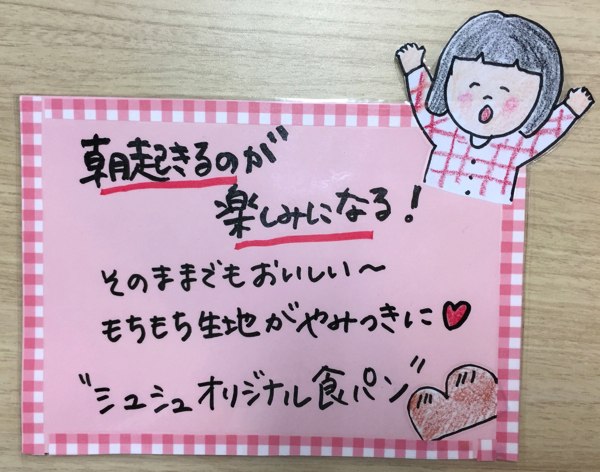 朝起きるのが
楽しみになる!
そのままでもおいしい〜
もちもち生地がやみつきに♥
"シュシュオリジナル食パン"